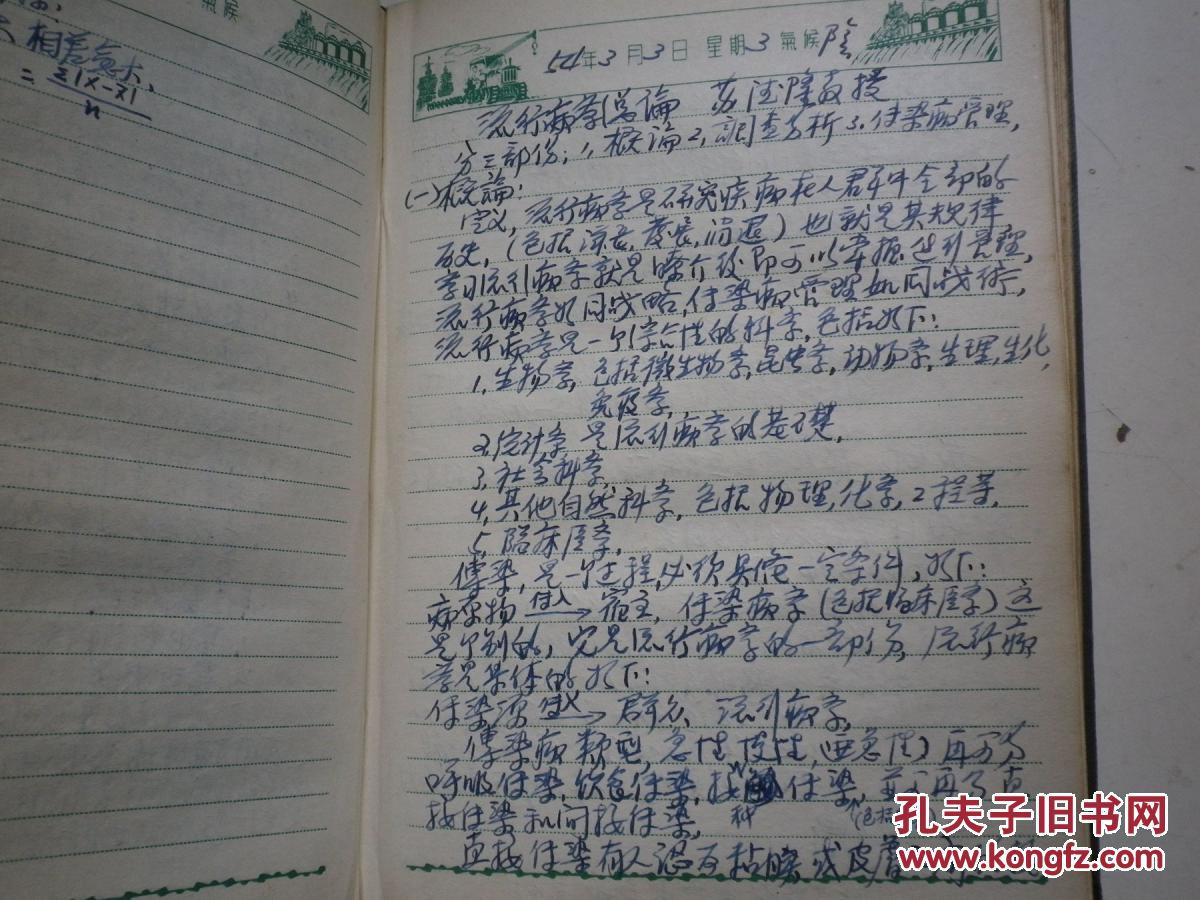 氣候
相差愈大,
= Σ|X-X̄|
n
54年3月3日 星期3 氣候 陰
流行病学总論 苏德隆教授
分三部份; 1, 概論 2, 調查分析 3, 传染病管理,
(一)概論:
定义, 流行病学是研究疾病在人群中全部的
历史, (包括 发展, 消退) 也就是其规律
学习流行病学就是瞭介後即可以掌握进行管理,
流行病学如同战略, 传染病管理如同战術,
流行病学是一个综合性的科学, 包括如下:
1, 生物学, 包括微生物学, 昆虫学, 动物学, 生理, 生化,
免疫学,
2, 统计学, 是流行病学的基礎,
3, 社会科学,
4, 其他自然科学, 包括物理, 化学, 工程等,
5, 臨床医学,
傳染, 是一个过程, 必须具俻一定条件, 如下:
病原物 传入→ 宿主, 传染病学(包括临床医学)这
是个别的, 它是流行病学的一部份, 流行病
学是集体的如下:
传染源 传入→ 群众, 流行病学,
傳染病类型, 急性, 慢性, (亚急性) 再可分
呼吸传染, 饮食传染, 接触传染, 再分直
接传染和间接传染, 种
直接传染有人 粘膜 或皮膚
孔夫子旧书网
www.kongfz.com